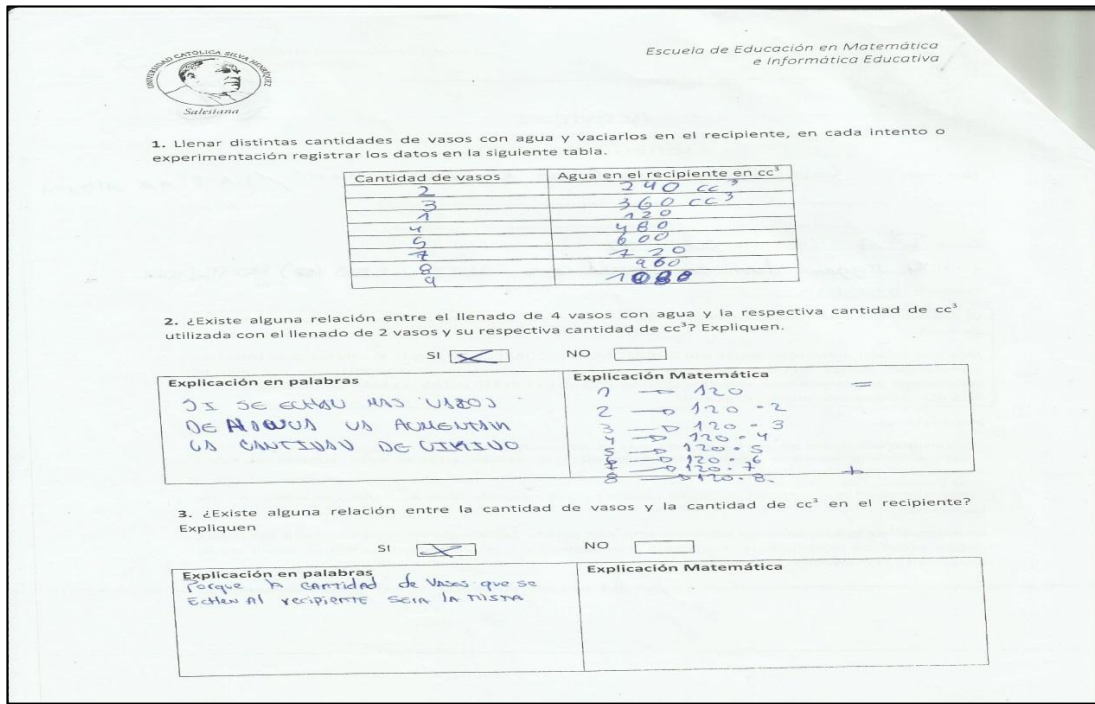 UNIVERSIDAD CATÓLICA SILVA HENRÍQUEZ
Salesiana
Escuela de Educación en Matemática
e Informática Educativa
1. Llenar distintas cantidades de vasos con agua y vaciarlos en el recipiente, en cada intento o
experimentación registrar los datos en la siguiente tabla.
Cantidad de vasos Agua en el recipiente en cc³
2 240 cc³
3 360 cc³
1 120
4 480
5 600
7 720
8 960
9 1080
2. ¿Existe alguna relación entre el llenado de 4 vasos con agua y la respectiva cantidad de cc³
utilizada con el llenado de 2 vasos y su respectiva cantidad de cc³? Expliquen.
SI X NO
Explicación en palabras
SI SE ECHAN MAS VASOS
DE VA AUMENTAR
LA CANTIDAD DE
Explicación Matemática
1 → 120 =
2 → 120 · 2
3 → 120 · 3
4 → 120 · 4
5 → 120 · 5
6 → 120 · 6
7 → 120 · 7
8 → 120 · 8.
3. ¿Existe alguna relación entre la cantidad de vasos y la cantidad de cc³ en el recipiente?
Expliquen
SI X NO
Explicación en palabras
Porque la cantidad de vasos que se
echen al recipiente seria la misma
Explicación Matemática